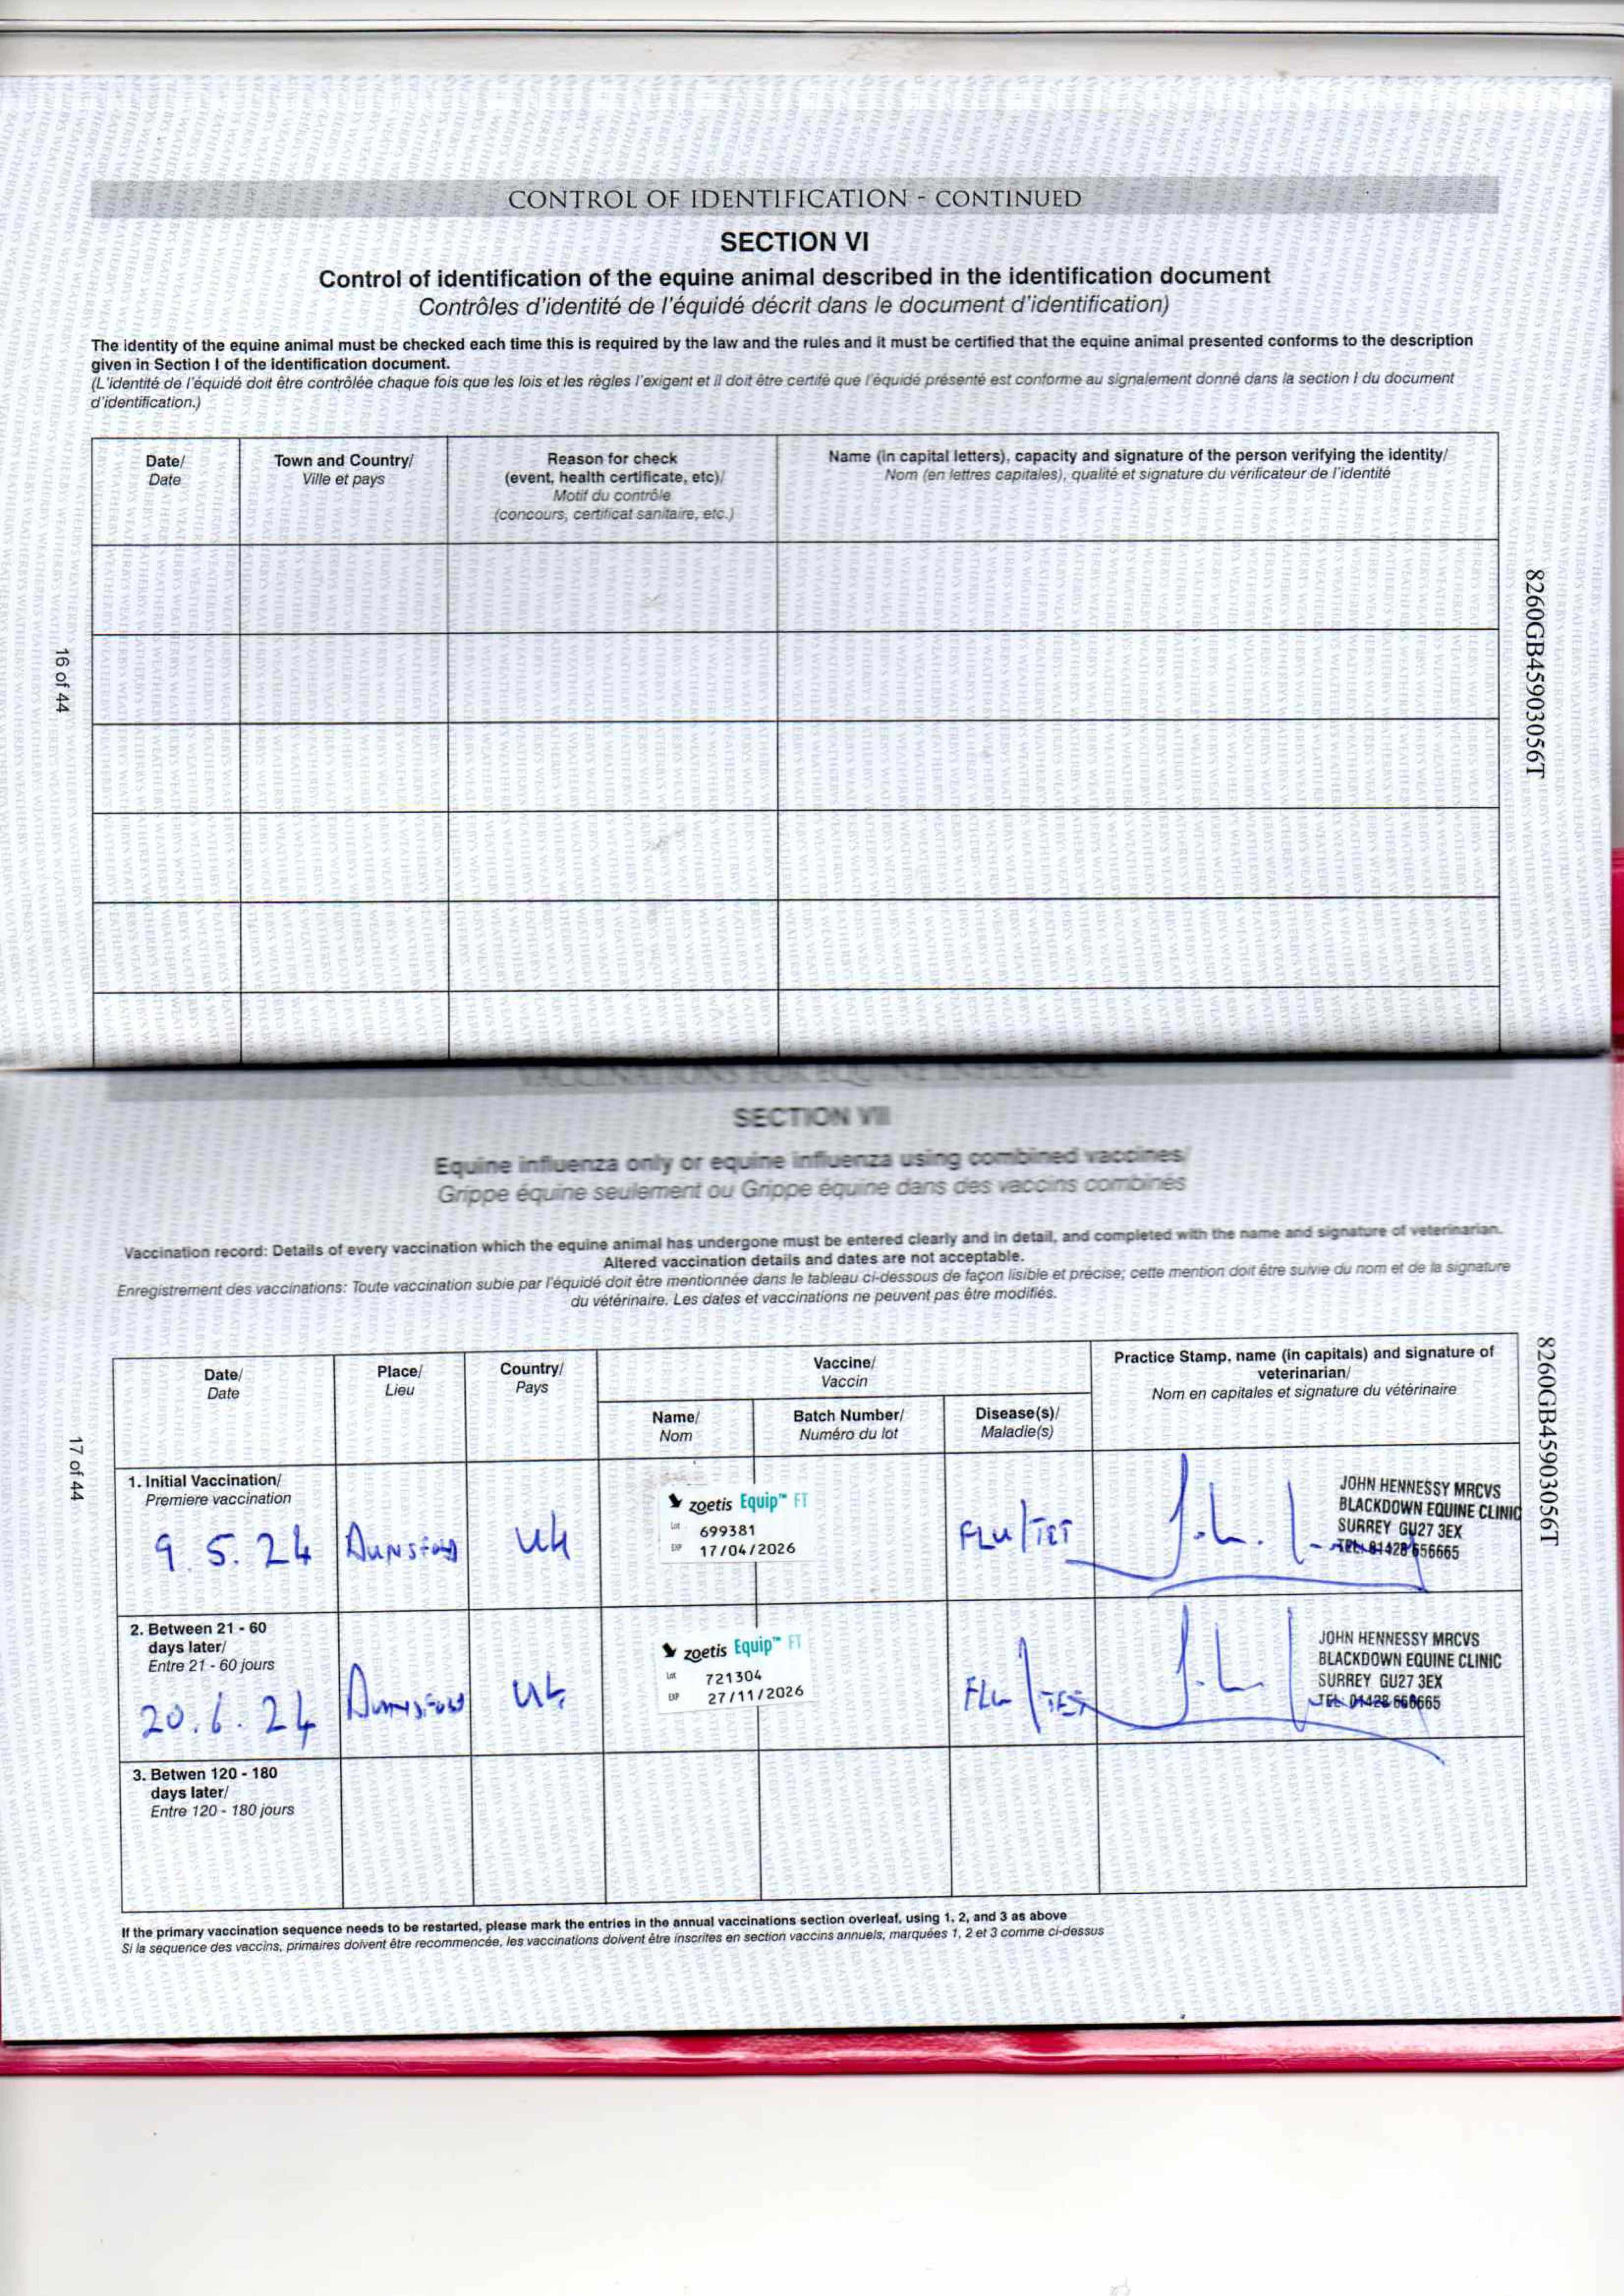 CONTROL OF IDENTIFICATION - CONTINUED
SECTION VI
Control of identification of the equine animal described in the identification document
Contrôles d'identité de l'équidé décrit dans le document d'identification)
The identity of the equine animal must be checked each time this is required by the law and the rules and it must be certified that the equine animal presented conforms to the description
given in Section I of the identification document.
(L'identité de l'équidé doit être contrôlée chaque fois que les lois et les règles l'exigent et il doit être certifé que l'équidé présenté est conforme au signalement donné dans la section I du document
d'identification.)
Date/
Date
Town and Country/
Ville et pays
Reason for check
(event, health certificate, etc)/
Motif du contrôle
(concours, certificat sanitaire, etc.)
Name (in capital letters), capacity and signature of the person verifying the identity/
Nom (en lettres capitales), qualité et signature du vérificateur de l'identité
16 of 44
8260GB45903056T
VACCINATIONS FOR EQUINE INFLUENZA
SECTION VII
Equine influenza only or equine influenza using combined vaccines/
Grippe équine seulement ou Grippe équine dans des vaccins combinés
Vaccination record: Details of every vaccination which the equine animal has undergone must be entered clearly and in detail, and completed with the name and signature of veterinarian.
Altered vaccination details and dates are not acceptable.
Enregistrement des vaccinations: Toute vaccination subie par l'équidé doit être mentionnée dans le tableau ci-dessous de façon lisible et précise; cette mention doit être suivie du nom et de la signature
du vétérinaire. Les dates et vaccinations ne peuvent pas être modifiés.
Date/
Date
Place/
Lieu
Country/
Pays
Vaccine/
Vaccin
Name/
Nom
Batch Number/
Numéro du lot
Disease(s)/
Maladie(s)
Practice Stamp, name (in capitals) and signature of
veterinarian/
Nom en capitales et signature du vétérinaire
1. Initial Vaccination/
Premiere vaccination
9.5.24
UK
zoetis Equip™ FT
Lot 699381
EXP 17/04/2026
FLU/TET
JOHN HENNESSY MRCVS
BLACKDOWN EQUINE CLINIC
SURREY GU27 3EX
TEL 01428 656665
2. Between 21 - 60
days later/
Entre 21 - 60 jours
20.6.24
UK
zoetis Equip™ FT
Lot 721304
EXP 27/11/2026
FLU/TET
JOHN HENNESSY MRCVS
BLACKDOWN EQUINE CLINIC
SURREY GU27 3EX
TEL 01428 656665
3. Betwen 120 - 180
days later/
Entre 120 - 180 jours
If the primary vaccination sequence needs to be restarted, please mark the entries in the annual vaccinations section overleaf, using 1, 2, and 3 as above
Si la sequence des vaccins, primaires doivent être recommencée, les vaccinations doivent être inscrites en section vaccins annuels, marquées 1, 2 et 3 comme ci-dessus
17 of 44
8260GB45903056T